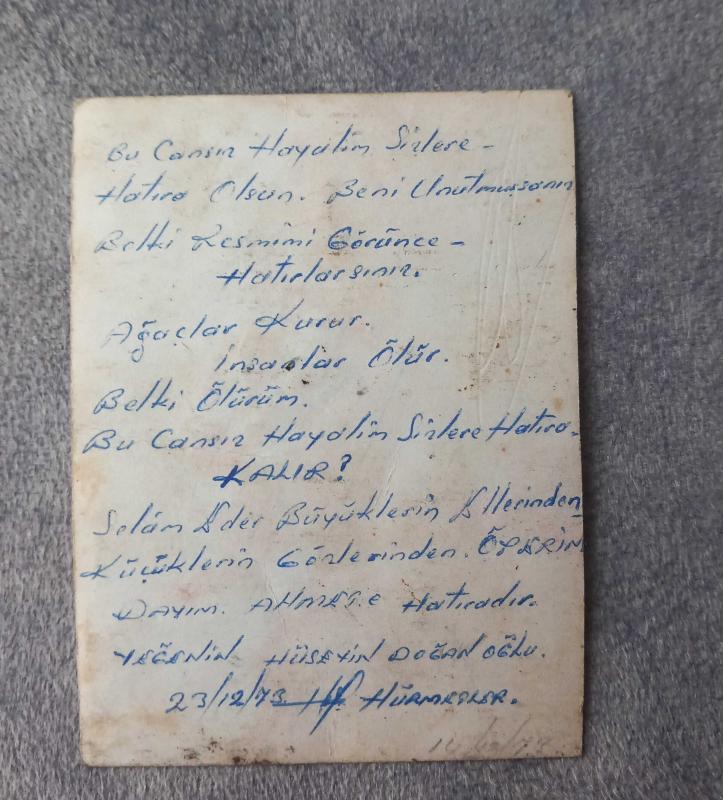 Bu Cansız Hayalim Sizlere -
Hatıra Olsun. Beni Unutmuşsanız
Belki Resmimi Görünce -
Hatırlarsınız.
Ağaçlar Kurur.
İnsanlar Ölür.
Belki Ölürüm.
Bu Cansız Hayalim Sizlere Hatıra-
KALIR?
Selâm Eder Büyüklerin Ellerinden
Küçüklerin Gözlerinden. ÖPERİM
DAYIM. AHMEDE Hatıradır.
YEĞENİN HÜSEYİN DOĞANOĞLU.
23/12/73 HÜRMETLER.